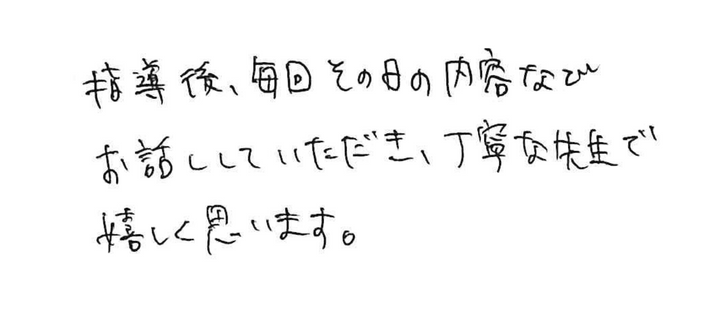 指導後、毎回その日の内容など
お話ししていただき、丁寧な先生で
嬉しく思います。